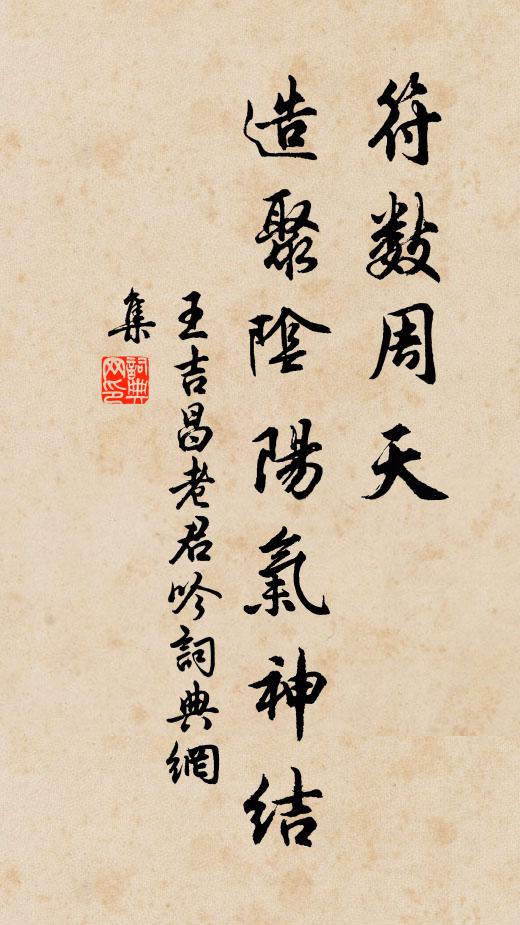 符數周天
造聚陰陽氣神結
王吉昌老君吟詞典網
集
詞典網印